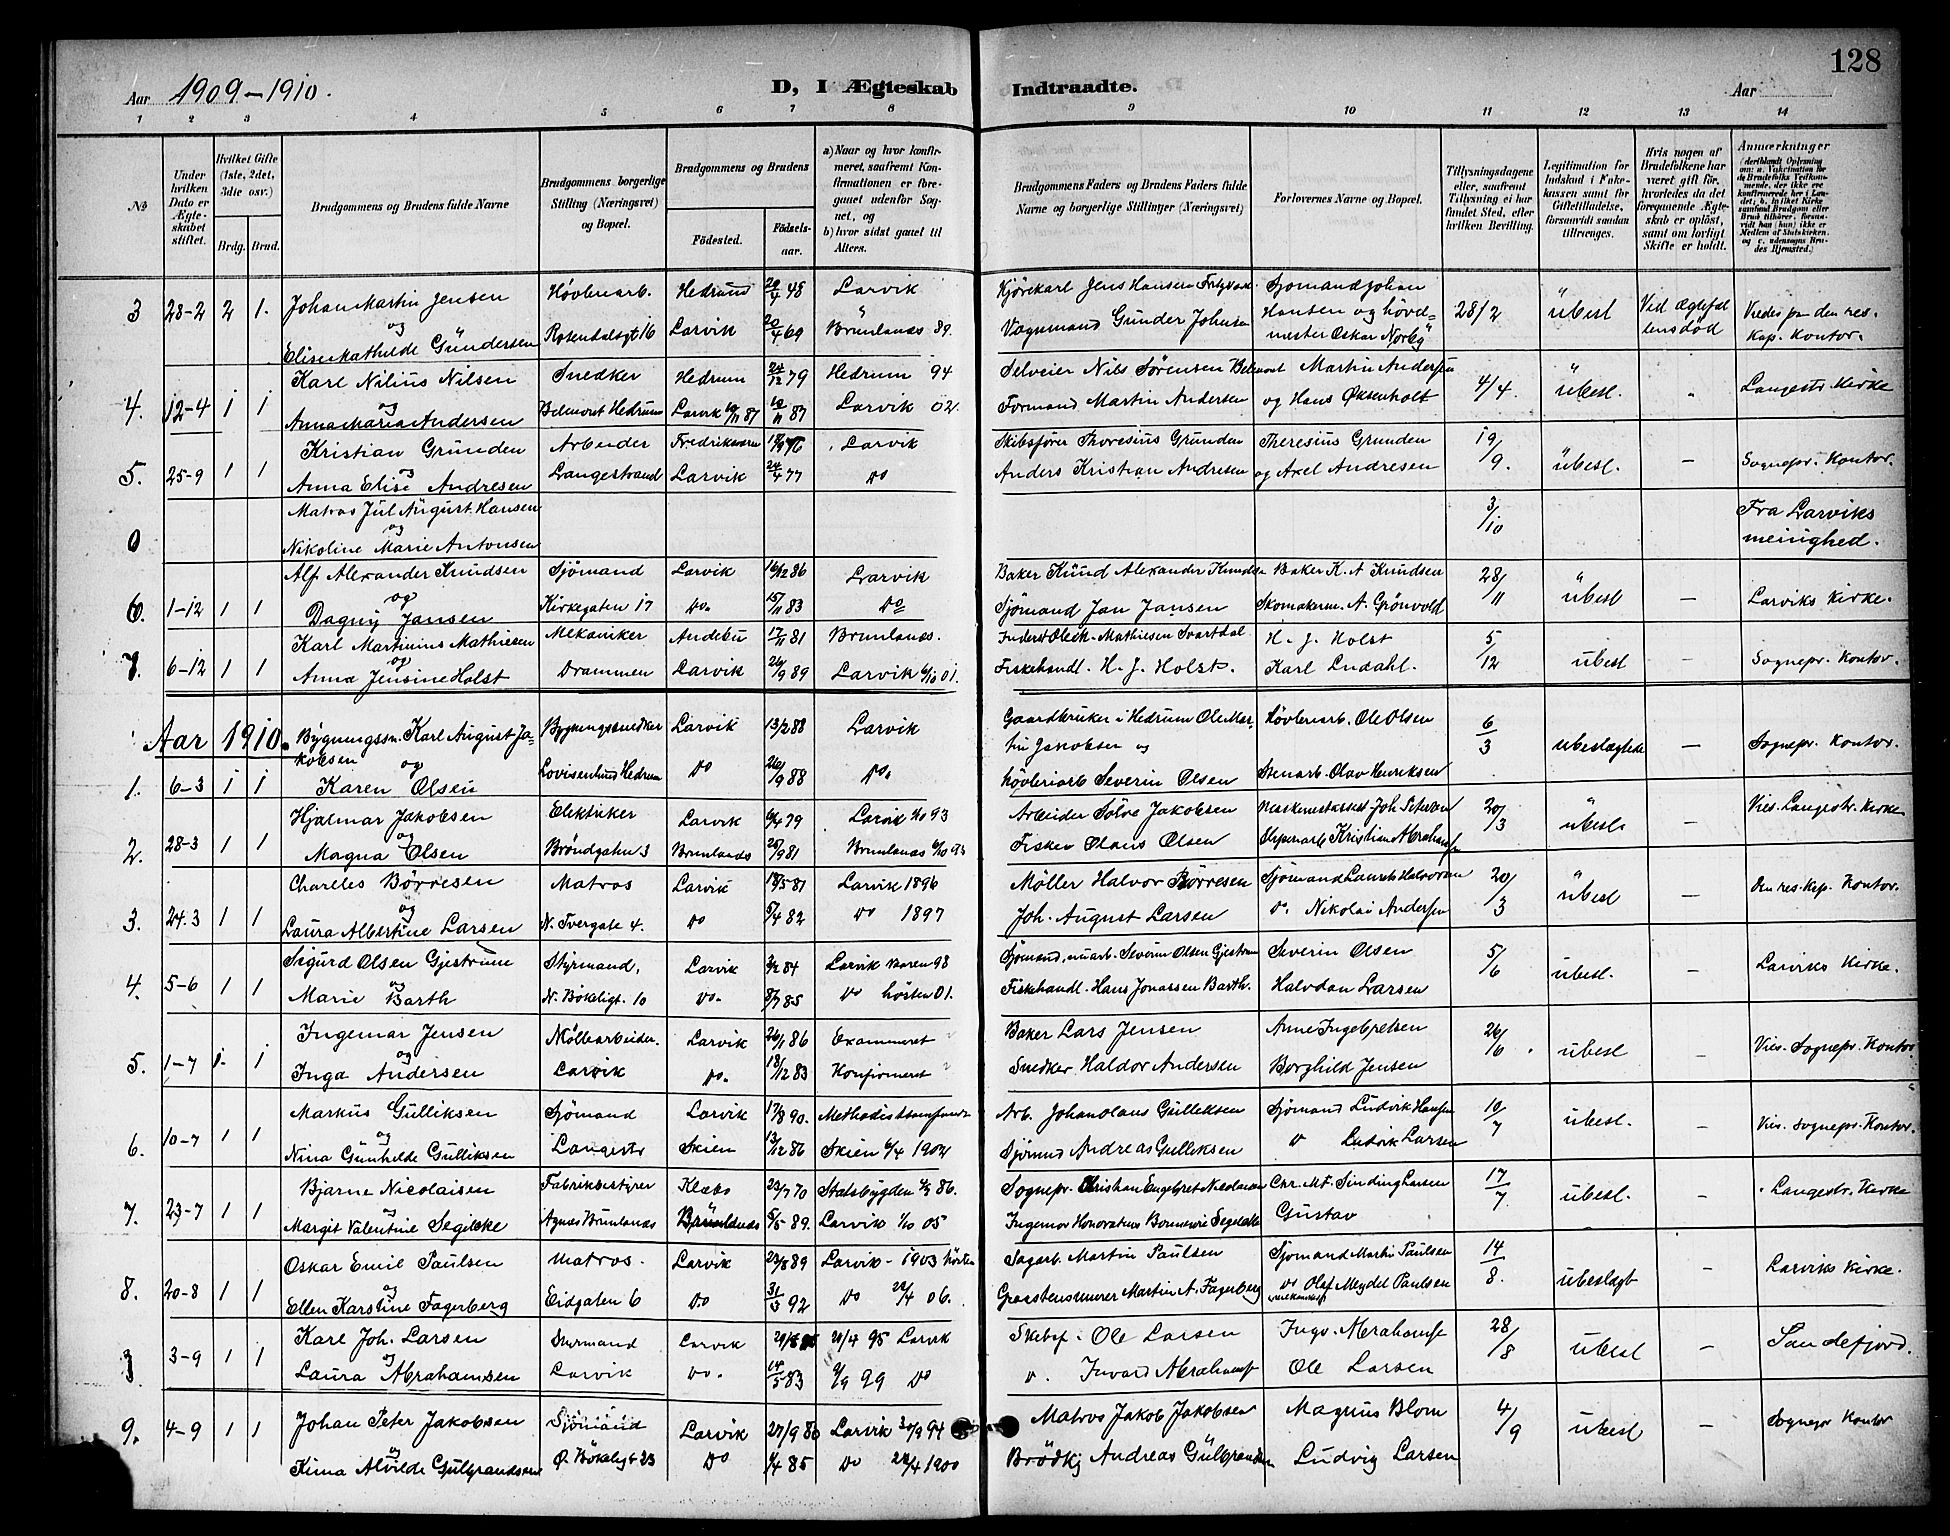 128
Aar 1909-1910.
D, I Ægteskab Indtraadte.
Aar
1 2 3 4 5 6 7 8 9 10 11 12 13 14
№
Under hvilken Dato er Ægteskabet stiftet.
Hvilket Gifte (1ste, 2det, 3die osv.)
Brdg. Brud.
Brudgommens og Brudens fulde Navne
Brudgommens borgerlige Stilling (Næringsvei) og Bopæl.
Brudgommens og Brudens
Födested. Födsels-aar.
a) Naar og hvor konfirmeret, saafremt Konfirmationen er foregaaet udenfor Sognet, og
b) hvor sidst gaaet til Alters.
Brudgommens Faders og Brudens Faders fulde Navne og borgerlige Stillinger (Næringsvei)
Forlovernes Navne og Bopæl.
Tillysningsdagene eller, saafremt Tillysning ei har fundet Sted, efter hvilken Bevilling.
Legitimation for Indskud i Enkekassen samt for Giftetilladelse, forsaavidt saadan tiltrænges.
Hvis nogen af Brudefolkene har været gift för, hvorledes da det foregaaende Ægteskab er oplöst, samt om lovligt Skifte er holdt.
Anmærkninger
3 28-2 2 1. Johan Martin Jensen Høvleriarb. Hedrum 20/4 48 Larvik Kjørekarl Jens Hansen Sjømand Johan 28/2 übesl Ved Ægtefæl Viedes paa den res.
og Hansen og høvd-
Elise Mathilde Gündersen Rosendalsgt 16 Larvik 20/4 69 Brunlanæs 89. Vognmand Gunder Johnsen mester Oskar Norby lensdød Kap. Kontor.
4. 12-4 1 1 Karl Nilius Nilsen Snedker Hedrum 24/12 79 Hedrum 94 Selveier Nils Sørensen Belmont Martin Andersen 4/4. übesl. Langestr. Kirke
og
Anna Maria Andersen Belmont Hedrum Larvik 10/11 87 Larvik 02. Formand Martin Andersen og Hans Øksenholt
5. 25-9 1 1 Kristian Grunden Arbeider Fredriksværn Larvik Skibsfører Thoresius Grunden Theresius Grunden 19/9. übesl. — Sognepr. Kontor.
og
Anna Elise Andresen Langestrand Larvik 24/4 77 Do Anders Kristian Andresen og Axel Andresen
0 Matros Jul August Hansen 3/10 Fra Larviks
og
Nikoline Marie Antonsen menighed.
6. 1-12 1 1 Alf Alexander Knudsen Sjömand Larvik 16/12 86 Larvik Baker Knüd Alexander Knudsen Baker K. A Knudsen 28/11 übesl — Larviks Kirke.
og
Dagny Jansen Kirkegaten 17 Do. 15/11 83 Do Sjömand Jan Jansen Skomakerm. A. Grönvold
7. 6-12 1 1 Karl Martinius Mathisen Mekaniker Andebu 17/11 81 Brunlanæs. Mathiesen Svartdal H. J. Holst 5/12 übesl — Sognepr. Kontor.
og
Anna Jensine Holst Drammen Larvik 26/9 89 Larvik 6/10 01. Fiskehandl. H. J. Holst. Karl Lindahl.
Aar 1910.
1. 6-3 1 1 Bygningssn. Karl August Ja- Bygningssnedker Larvik 13/2 88 Larvik Gaardbruker i Hedrum Ole Mar- Høvleriarb. Ole Olsen 6/3 ubeslægtede — Sognepr. Kontor.
kobsen og tin Jakobsen og
Karen Olsen Lovisenlund Hedrum Do 26/9 88 Do. Høvleriarb Severin Olsen Stenarb. Olav Henriksen
2. 28-3 1 1 Hjalmar Jakobsen Elektriker Larvik 79 Larvik 93 Arbeider Sölve Jakobsen 20/3 übesl — Vies. Langestr. Kirke
og
Magna Olsen Bröndgaten 3 Brunlanæs 25/9 81 Brunlanæs Fisker Olaus Olsen Kristian Abrahamsen
3. 24-3 1 1 Charles Börresen Matros Larvik 18/5 81 Larvik 1896 Møller Halvor Börresen Sjømand Laurits Halvorsen 20/3 übesl — Den res. Kap. Kontor.
og
Laura Albertine Larsen N. Tvergate 4. Do 5/4 82 Do 1897 Joh. August Larsen Do. Nikolai Andersen
4. 5-6 1 1 Sigurd Olsen Gjestrum Styrmand, Larvik 84 Larvik vaaren 98 Severin Olsen Gjestrum Severin Olsen 5/6 übesl. — Larviks Kirke.
og
Marie Barth N. Bökeligt. 10 Do. 8/7 85 Do høsten 01. Fiskehandl. Hans Jonassen Barth. Halvdan Larsen
5. 1-7 1. 1 Ingemar Jensen Möllearbeider. Larvik 26/1 86 Examineret Baker Lars Jensen Anne Ingebretsen 26/6 übesl — Vies. Sognepr. Kontor
og
Inga Andersen Larvik Do. 18/12 83 Konfirmeret Snedker Haldor Andersen Borghild Jensen
6. 10-7 1 1 Markus Gulliksen Sjömand Larvik 17/8 90. Methodistsamfundet Arb. Johan Olaus Gulliksen Sjömand Ludvik Hansen 10/7 übesl. — Vies. Sognepr. Kontor.
og
Nina Günhilde Gulliksen Langestr Skien 13/12 86 Skien 6/4 1902 Sjömand Andreas Gulliksen Do Ludvik Larsen
7. 23-7 1 1 Bjarne Nicolaisen Fabrikbestyrer Klæbo 23/7 70 Statsbygden 86. Sognepr. Kristian Engebret Nicolaisen Chr. Mt. Sinding Larsen 17/7 übesl. — Langestr. Kirke
Margit Valentine Segelcke Agnæs Brunlanæs Brunlanæs 5/5 89. Larvik 1/10 05 Segelcke Gustav
8. 20-8 1 1 Oskar Emil Paulsen Matros. Larvik 23/8 89 Larvik - 1903 høsten Sagarb. Martin Paulsen Sjømand Martin Paulsen 14/8. ubeslægt — Larviks Kirke.
og
Ellen Karstine Fagerberg Eidgaten 6 Do 31/3 92 Do 22/4 06. Martin A. Fagerberg Do Olaf Meydel Paulsen
3 3-9 1 1 Karl Joh. Larsen Styrmand Larvik 21/4 95 Larvik Skibsf. Ole Larsen Ingv. Abrahamsn 28/8 übesl — Sandefjord.
og
Laura Abrahamsen Larvik Do. 14/5 83 99 Do Do. Ingvard Abrahamsn Ole Larsen
9. 4-9 1 1 Johan Peter Jakobsen Sjömand Larvik 27/9 80 Larvik 30/9 94 Matros Jakob Jakobsen Magnus Blom 4/9 übesl — Sognepr Kontor
og
Kima Alvilde Gulbrandsen Ø. Bökeligt 23 Do 85 Do 22/4 1900 Andreas Gülbrandsen Ludvig Larsen